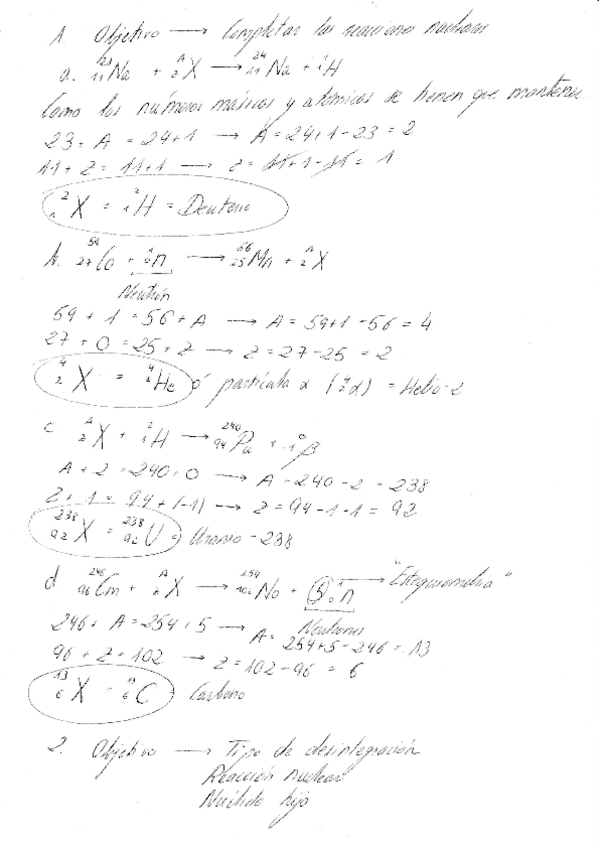 1. Objetivo → Completar las reacciones nucleares
a. ²³₁₁Na + ᴬ_Z X → ²⁴₁₁Na + ¹₁H
Como los números másicos y atómicos se tienen que mantener
23 + A = 24 + 1 → A = 24 + 1 - 23 = 2
11 + Z = 11 + 1 → Z = 11 + 1 - 11 = 1
²₁X = ²₁H = Deuterio
b. ⁵⁹₂₇Co + ¹₀n → ⁵⁶₂₅Mn + ᴬ_Z X
Neutrón
59 + 1 = 56 + A → A = 59 + 1 - 56 = 4
27 + 0 = 25 + Z → Z = 27 - 25 = 2
⁴₂X = ⁴₂He ó partícula α (⁴₂α) = Helio-2
c ᴬ_Z X + ²₁H → ²⁴⁰₉₄Pu + ⁰₋₁β
A + 2 = 240 + 0 → A = 240 - 2 = 238
Z + 1 = 94 + (-1) → Z = 94 - 1 - 1 = 92
²³⁸₉₂X = ²³⁸₉₂U = Uranio - 238
d ²⁴⁶₉₆Cm + ᴬ_Z X → ²⁵⁴₁₀₂No + 5 ¹₀n → "Estequiometría"
Neutrones
246 + A = 254 + 5 → A = 254 + 5 - 246 = 13
96 + Z = 102 → Z = 102 - 96 = 6
¹³₆X = ¹³₆C → Carbono
2. Objetivo → Tipo de desintegración
Reacción nuclear
Núclido hijo